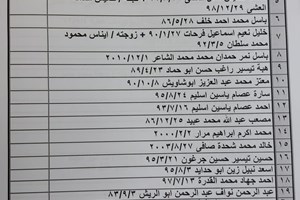 ٥
العشي ٩٨/١٢/٢٩
٦ باسل محمد احمد خلف ٨٦/٥/٢٨
٧ خليل نعيم اسماعيل فرحات ٩٠/١/٢٧ + زوجته / ايناس محمود
محمد سلطان ٩٢/٣/٥
٨ باسل نمر حمدان محمد محمد الشاعر ٢٠١٠/١٢/١
٩ هبة تيسير راغب حسن ابو حماد ٨٩/٤/٢٣
١٠ معتز محمد عبد العزيز ابوشاويش ٩٠/١٠/٨
١١ سارة عصام ياسين اسليم ٩٥/٨/٢٤
١٢ احمد عصام ياسين اسليم ٩٣/٧/١٦
١٣ مصعب عبد الله محمد عبيد ٨٦/١٢/٢٥
١٤ محمد اكرم ابراهيم مرار ٢٠٠٠/٢/٢
١٥ خالد محمد شحدة صافي ٢٠٠٣/٨/٢٧
١٦ حسين تيسير حسين جرغون ٩٥/٣/٢١
١٧ اسعد نبيل زين ابو حدايد ٩٥/٨/٣
١٨ احمد جهاد محمد القدرة ٩٧/٧/١٣
١٩ عبد الرحمن نواف عبد الرحمن ابو الريش ٨٣/٩/٣